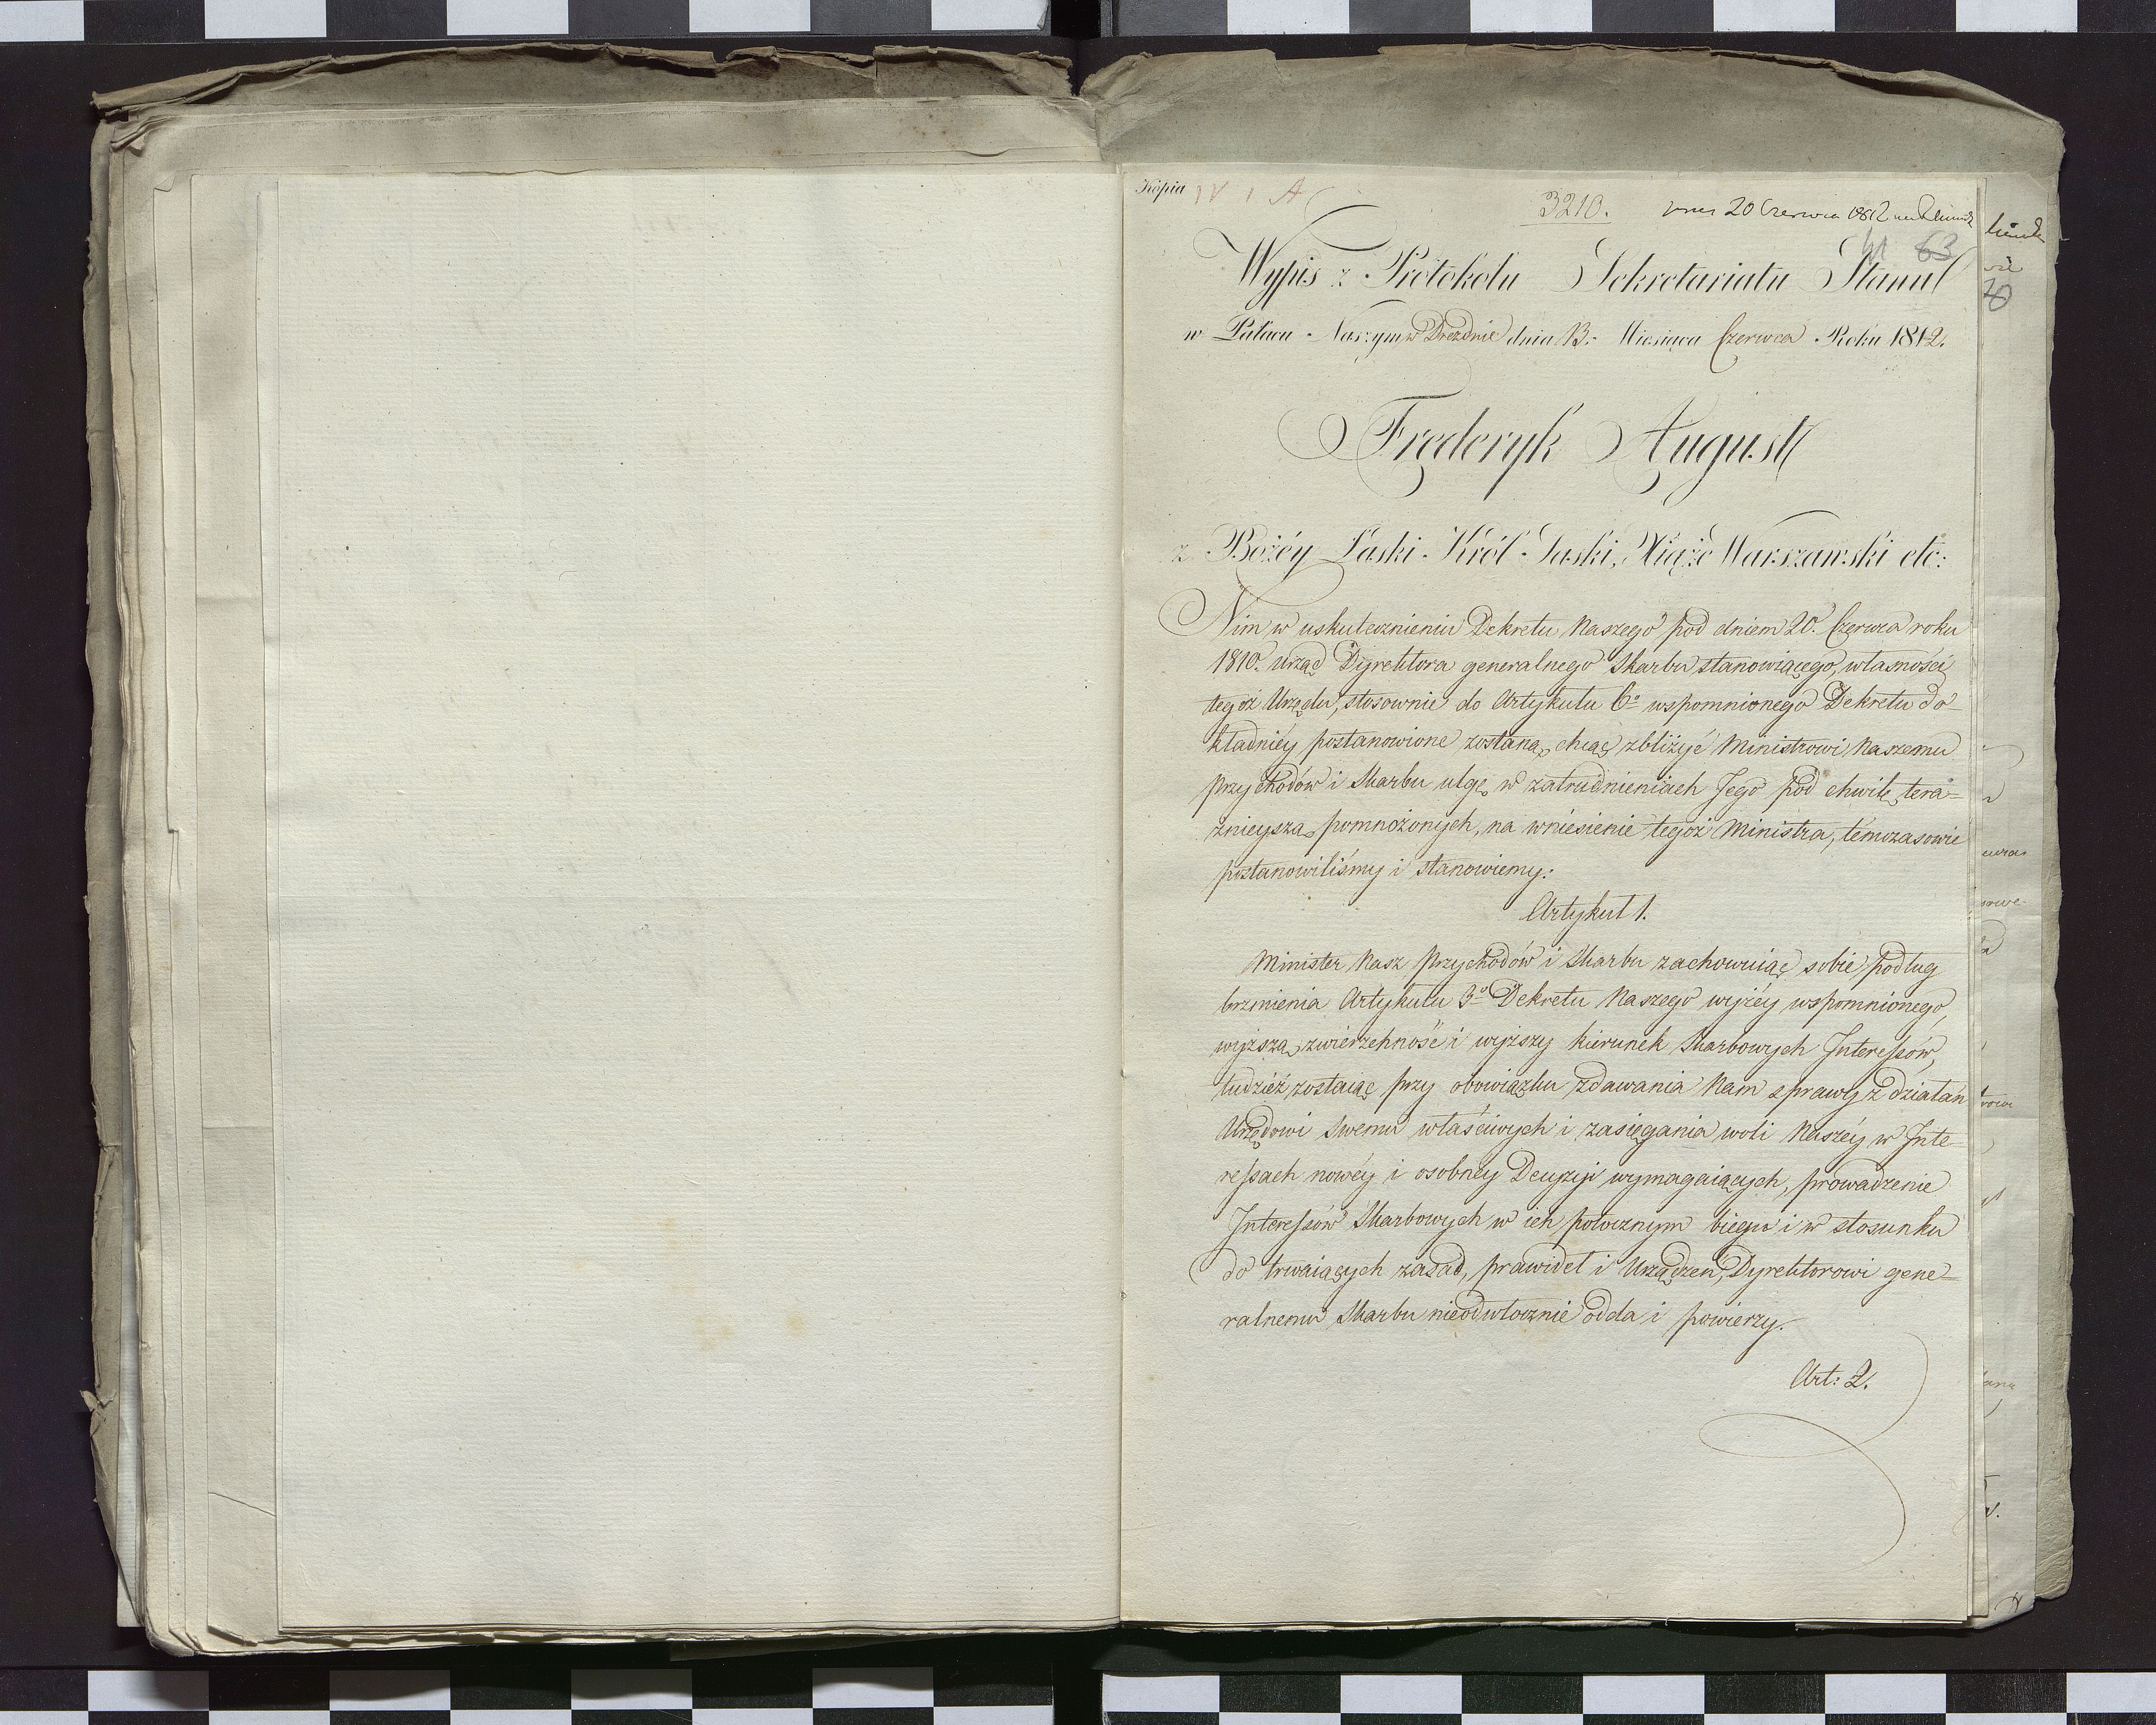 Kopia IV 1 A
3210. 20 Czerwca 1812
41 63
Wypis z Protokołu Sekretariatu Stanu
w Pałacu Naszym w Dreznie dnia 13. Miesiąca Czerwca Roku 1812.
Frederyk August
z Bożéy Łaski Król Saski, Xiąże Warszawski etc:
Nim w uskutecznieniu Dekretu Naszego pod dniem 20. Czerwca roku
1810. urząd Dyrektora generalnego Skarbu stanowiącego, własności
tegoż Urzędu, stosownie do Artykułu 6º wspomnionego Dekretu do=
kładniéy postanowione zostaną, chcąc zbliżyć Ministrowi Naszemu
Przychodów i Skarbu ulgę w zatrudnieniach Jego pod chwilę tera=
znieyszą pomnożonych, na wniesienie tegoż Ministra, témczasowie
postanowiliśmy i stanowiemy:
Artykuł 1.
Minister Nasz Przychodów i Skarbu zachowuiąc sobie podług
brzmienia Artykułu 3º Dekretu Naszego wyżéy wspomnionego,
wyższą zwierzchność i wyższy kierunek Skarbowych Interessów,
tudzież zostaiąc przy obowiązku zdawania Nam sprawy z działań
Urzędowi swemu właściwych i zasięgania woli Naszéy w Inte=
ressach nowéy i osobnéy Decyzyi wymagaiących, prowadzenie
Interessów Skarbowych w ich potocznym biegu i w stosunku
do trwaiących zasad, prawideł i Urządzeń, Dyrektorowi gene=
ralnemu Skarbu nieodwłocznie odda i powierzy.
Art: 2.